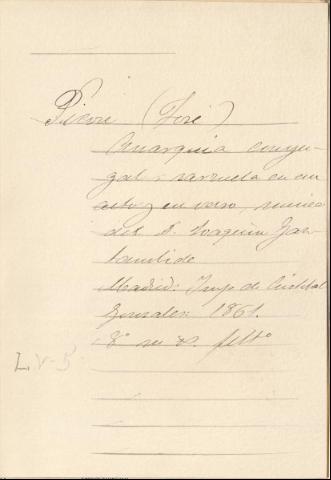 Picón (José)
Anarquia conyu-
gal: zarzuela en un
acto y en verso, música
del S. Joaquin Gaz-
tambide
Madrid: Imp. de Cristóbal
Gonzalez 1861.
8º
L V-5